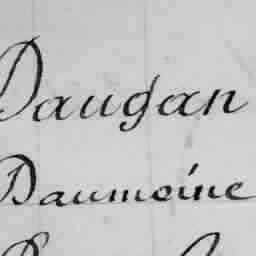 Daugan
Daumoine